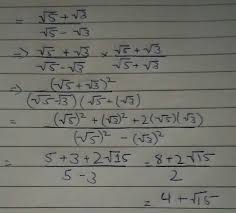 = (√5 + √3)/(√5 - √3)
=> (√5 + √3)/(√5 - √3) × (√5 + √3)/(√5 + √3)
=> (√5 + √3)²/(√5 - √3)(√5 + √3)
= ((√5)² + (√3)² + 2(√5)(√3))/((√5)² - (√3)²)
= (5 + 3 + 2√15)/(5 - 3) = (8 + 2√15)/2
= 4 + √15